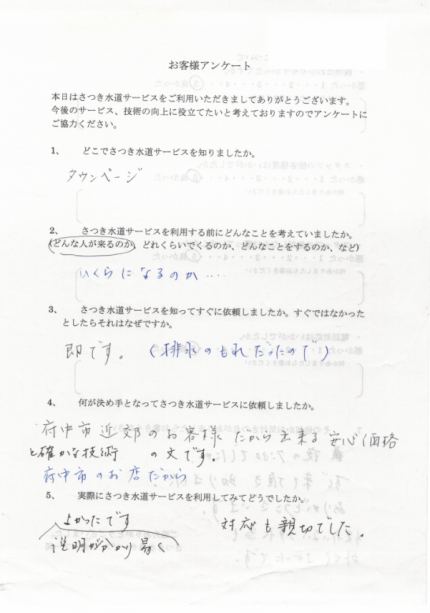 お客様アンケート
本日はさつき水道サービスをご利用いただきましてありがとうございます。
今後のサービス、技術の向上に役立てたいと考えておりますのでアンケートに
ご協力ください。
1、 どこでさつき水道サービスを知りましたか。
タウンページ
2、 さつき水道サービスを利用する前にどんなことを考えていましたか。
(どんな人が来るのか、どれくらいでくるのか、どんなことをするのか、など)
いくらになるのか....
3、 さつき水道サービスを知ってすぐに依頼しましたか。すぐではなかった
としたらそれはなぜですか。
即です。(排水のもれだったので)
4、 何が決め手となってさつき水道サービスに依頼しましたか。
府中市近郊のお客様だから出来る安心価格
と確かな技術 の文です。
府中市のお店だから
5、 実際にさつき水道サービスを利用してみてどうでしたか。
よかったです 対応も親切でした。
説明が分かり易く